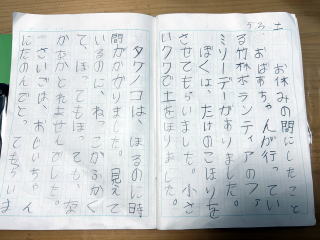 5/3 土
お休みの間にしたこと
おばあちゃんが行ってい
る竹林ボランティアのファ
ミリーデーがありました。
ぼくは、たけのこほりを
させてもらいました。小さ
いクワで土をほりました。
タケノコは、ほるのに時
間がかかりました。見えて
いるのに、ねっこがふかく
て、ほってもほっても、な
かなかとれませんでした。
さいごは、おじいちゃん
にたのんでと、てもらいま